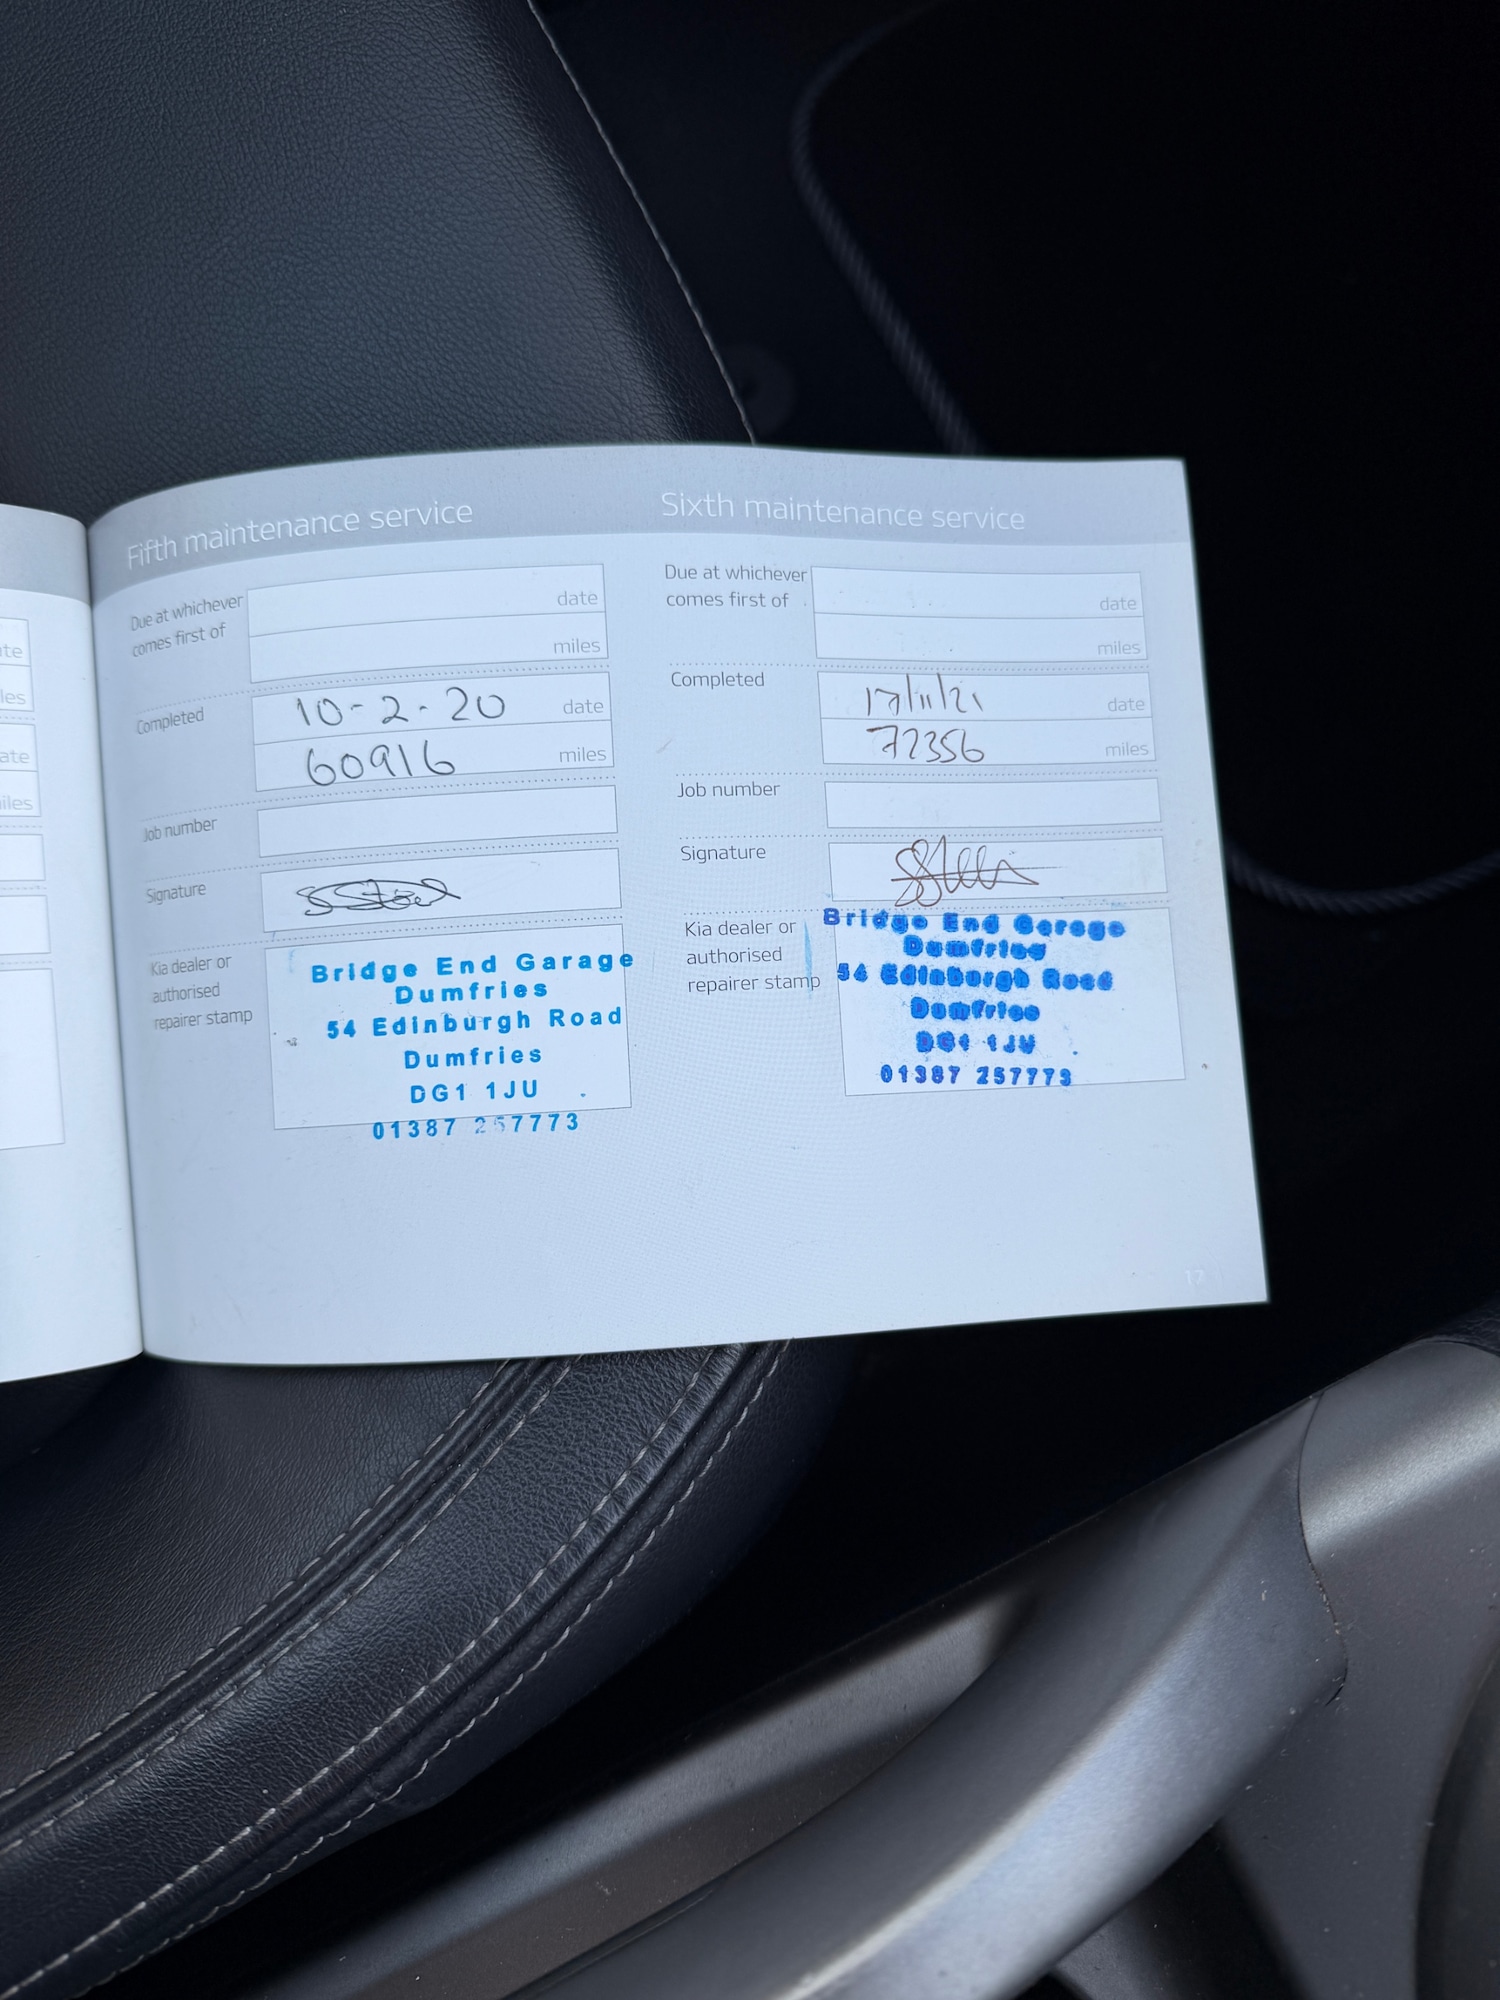 te
les
ate
iles
Fifth maintenance service
Due at whichever
comes first of
date
miles
Completed
10-2-20
date
60916
miles
Job number
Signature
Kia dealer or
authorised
repairer stamp
Bridge End Garage
Dumfries
54 Edinburgh Road
Dumfries
DG1 1JU
01387 257773
Sixth maintenance service
Due at whichever
comes first of
date
miles
Completed
17/11/21
date
72356
miles
Job number
Signature
Kia dealer or
authorised
repairer stamp
Bridge End Garage
Dumfries
54 Edinburgh Road
Dumfries
DG1 1JU
01387 257773
17